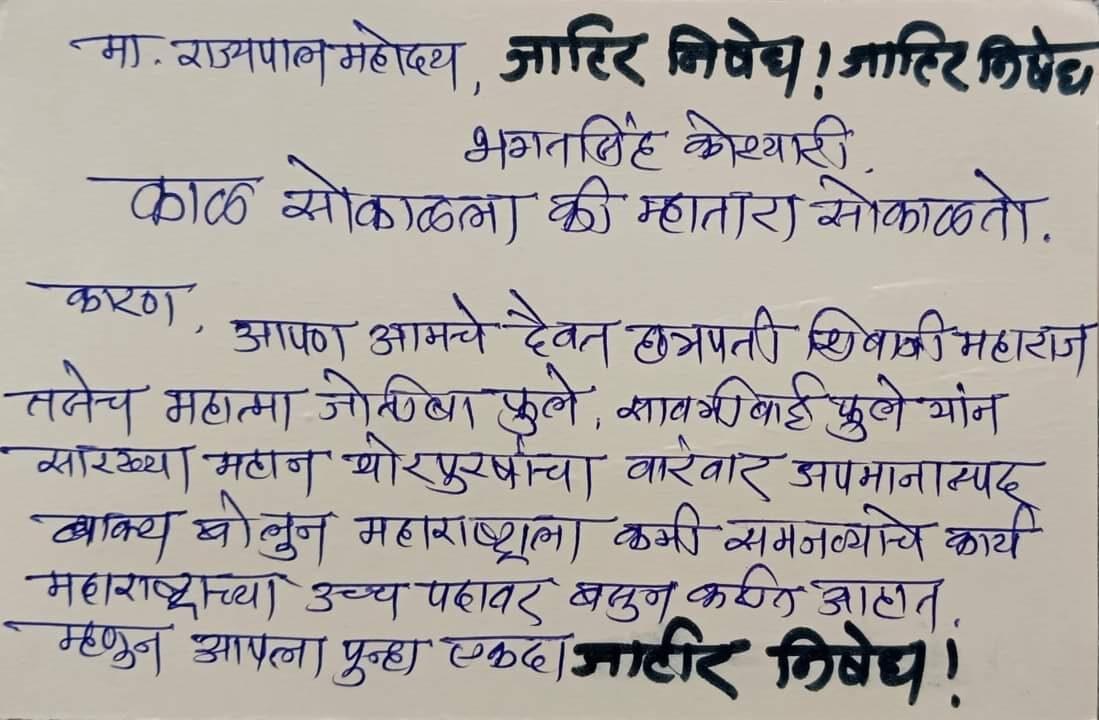 मा. राज्यपाल महोदय, जाहिर निषेध! जाहिर निषेध
भगतसिंह कोश्यारी.
काळ सोकाळला की म्हातारा सोकाळतो.
कारण,
आपण आमचे दैवत छत्रपती शिवाजी महाराज
तसेच महात्मा जोतिबा फुले, सावत्रीबाई फुले यांन
सारख्या महान थोरपुरषांचा वारंवार अपमानास्पद
व्याक्य बोलुन महाराष्ट्राला कमी समजव्याचे कार्य
महाराष्ट्राच्या उच्च पदावर बसुन करीत आहात.
म्हणुन आपला पुन्हा एकदा जाहीर निषेध!